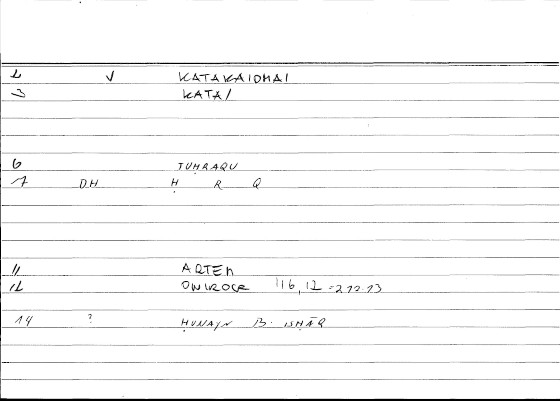 2 V KATAKAIOMAI
3 KATA/
6 TUḤRAQU
7 DH Ḥ R Q
11 ARTEM
12 ONIROCR 116, 12 = 212.13
14 ? ḤUNAYN B. ISḤĀQ